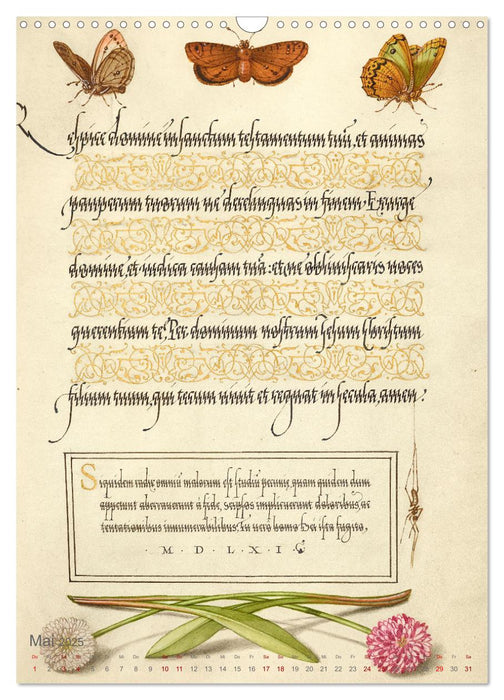 Respice domine in sanctum testamentum tuū, et animas
pauperum tuorum ne derelinquas in finem. Exurge
domine, et iudica causam tuā: et ne obliuiscaris voces
querentium te. Per dominum nostrum Jesum Christum
filium tuum, qui tecum uiuit et regnat in secula, amen.
Siquidem radix omniū malorum est studiū pecuniae, quam quidem dum
appetunt aberrauerunt à fide, seipsos implicuerunt doloribus, ac
tentationibus innumerabilibus. Tu uero homo Dei ista fugito,
· M · D · L · X I
Mai 2025
Do Fr Sa So Mo Di Mi Do Fr Sa So Mo Di Mi Do Fr Sa So Mo Di Mi Do Fr Sa So Mo Di Mi Do Fr Sa
1 2 3 4 5 6 7 8 9 10 11 12 13 14 15 16 17 18 19 20 21 22 23 24 25 26 27 28 29 30 31